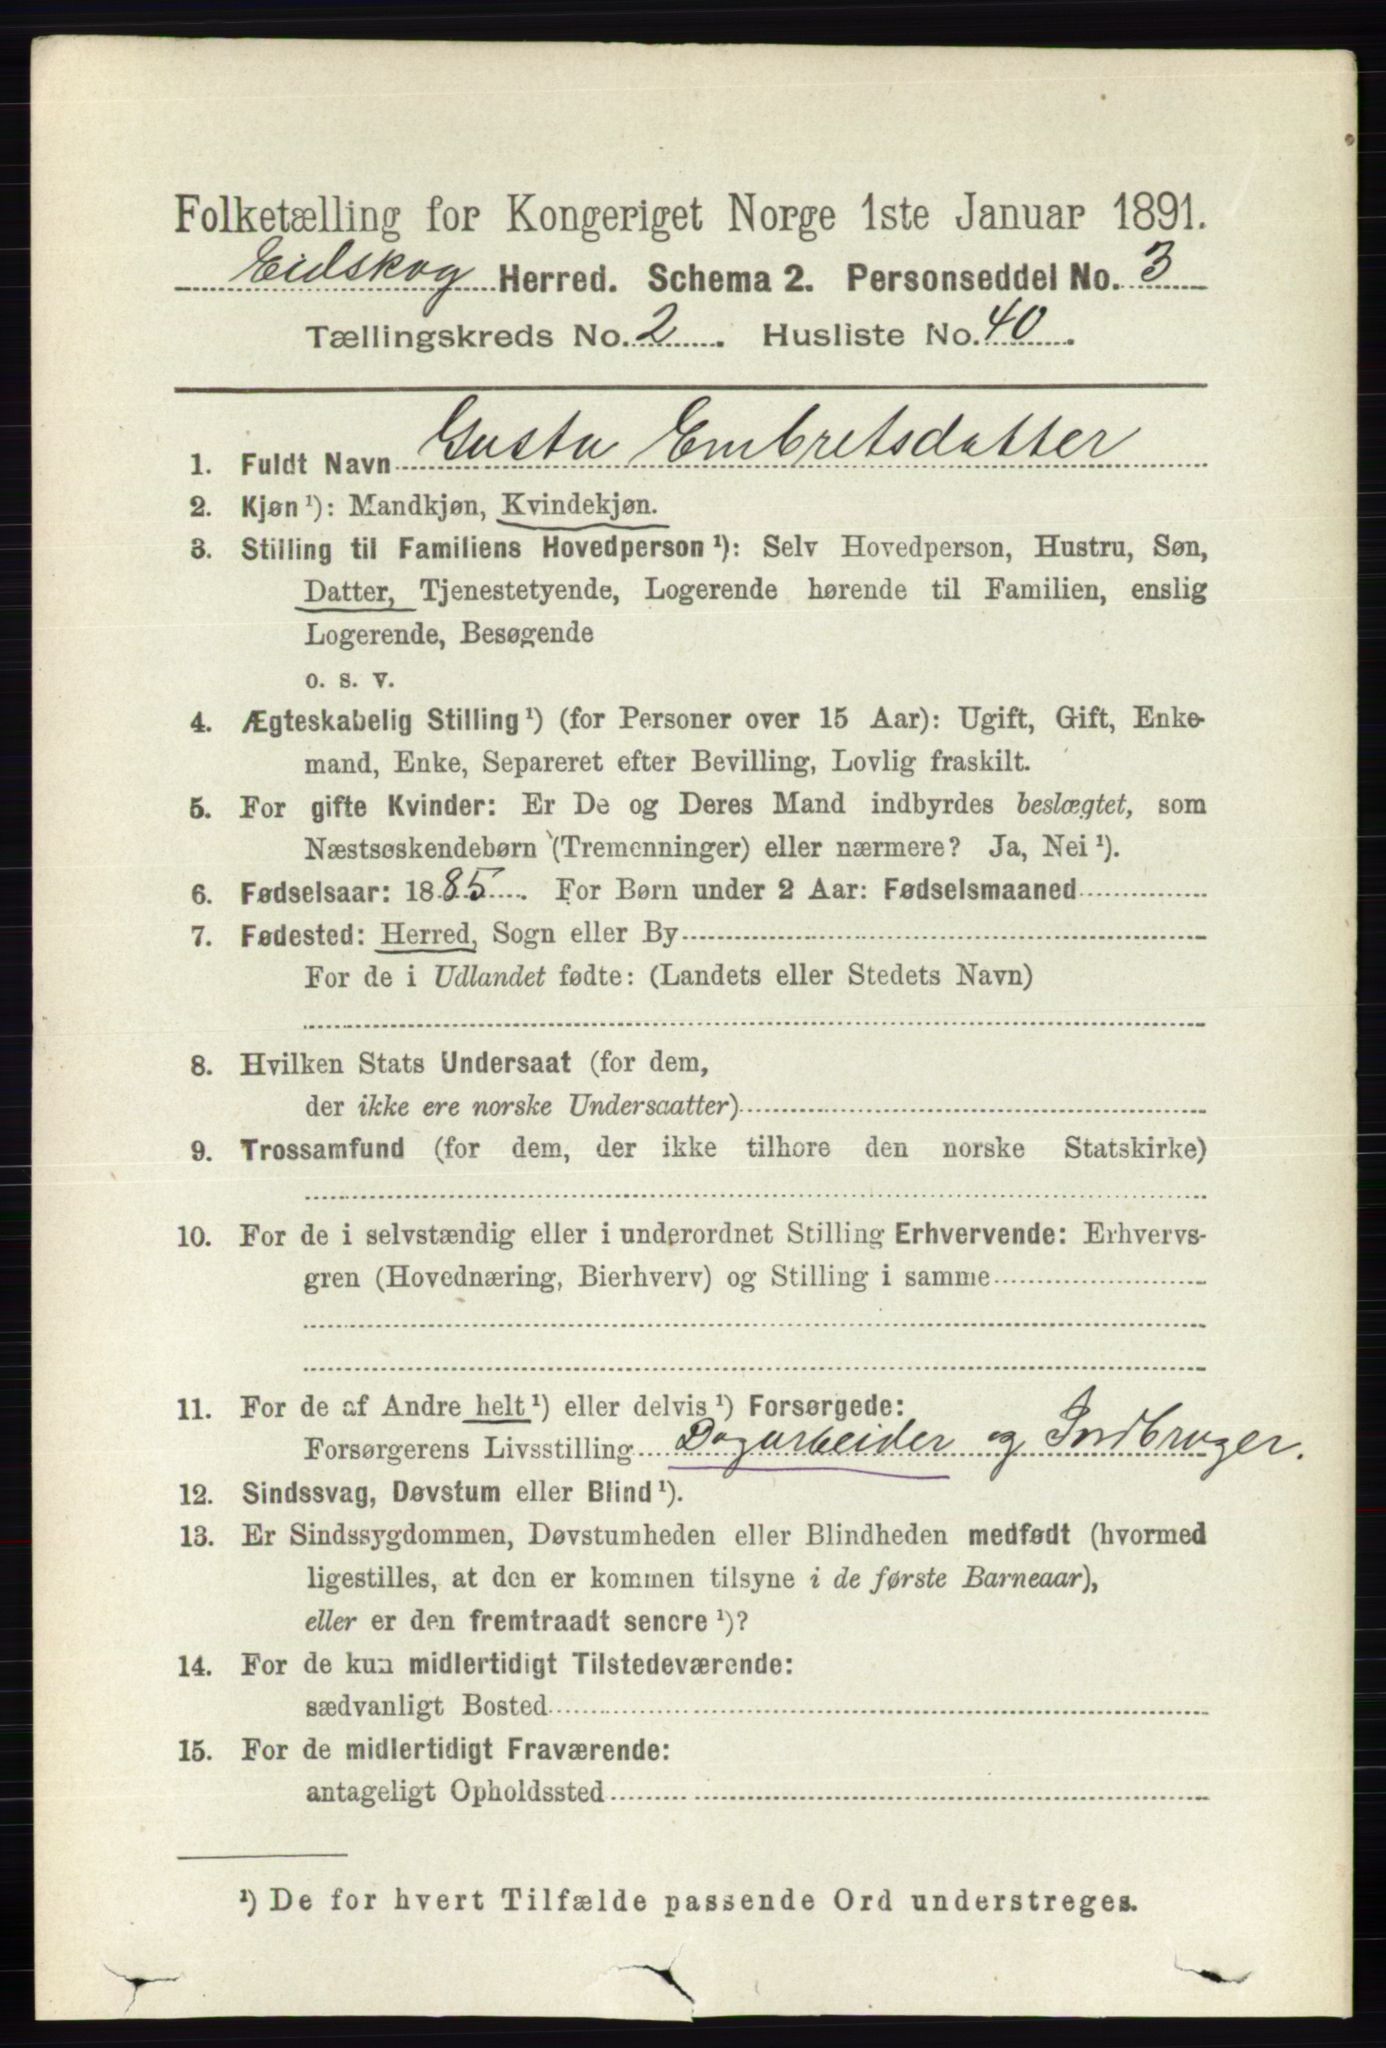 Folketælling for Kongeriget Norge 1ste Januar 1891.
Eidskog Herred. Schema 2. Personseddel No. 3
Tællingskreds No. 2. Husliste No. 40.
1. Fuldt Navn Gusta Embretsdatter
2. Kjøn ¹): Mandkjøn, Kvindekjøn.
3. Stilling til Familiens Hovedperson ¹): Selv Hovedperson, Hustru, Søn,
Datter, Tjenestetyende, Logerende hørende til Familien, enslig
Logerende, Besøgende
o. s. v.
4. Ægteskabelig Stilling ¹) (for Personer over 15 Aar): Ugift, Gift, Enke-
mand, Enke, Separeret efter Bevilling, Lovlig fraskilt.
5. For gifte Kvinder: Er De og Deres Mand indbyrdes beslægtet, som
Næstsøskendebørn (Tremenninger) eller nærmere? Ja, Nei ¹).
6. Fødselsaar: 1885. For Børn under 2 Aar: Fødselsmaaned
7. Fødested: Herred, Sogn eller By
For de i Udlandet fødte: (Landets eller Stedets Navn)
8. Hvilken Stats Undersaat (for dem,
der ikke ere norske Undersaatter)
9. Trossamfund (for dem, der ikke tilhøre den norske Statskirke)
10. For de i selvstændig eller i underordnet Stilling Erhvervende: Erhvervs-
gren (Hovednæring, Bierhverv) og Stilling i samme
11. For de af Andre helt ¹) eller delvis ¹) Forsørgede:
Forsørgerens Livsstilling Dagarbeider og Indbruger.
12. Sindssvag, Døvstum eller Blind ¹).
13. Er Sindssygdommen, Døvstumheden eller Blindheden medfødt (hvormed
ligestilles, at den er kommen tilsyne i de første Barneaar),
eller er den fremtraadt senere ¹)?
14. For de kun midlertidigt Tilstedeværende:
sædvanligt Bosted
15. For de midlertidigt Fraværende:
antageligt Opholdssted
¹) De for hvert Tilfælde passende Ord understreges.